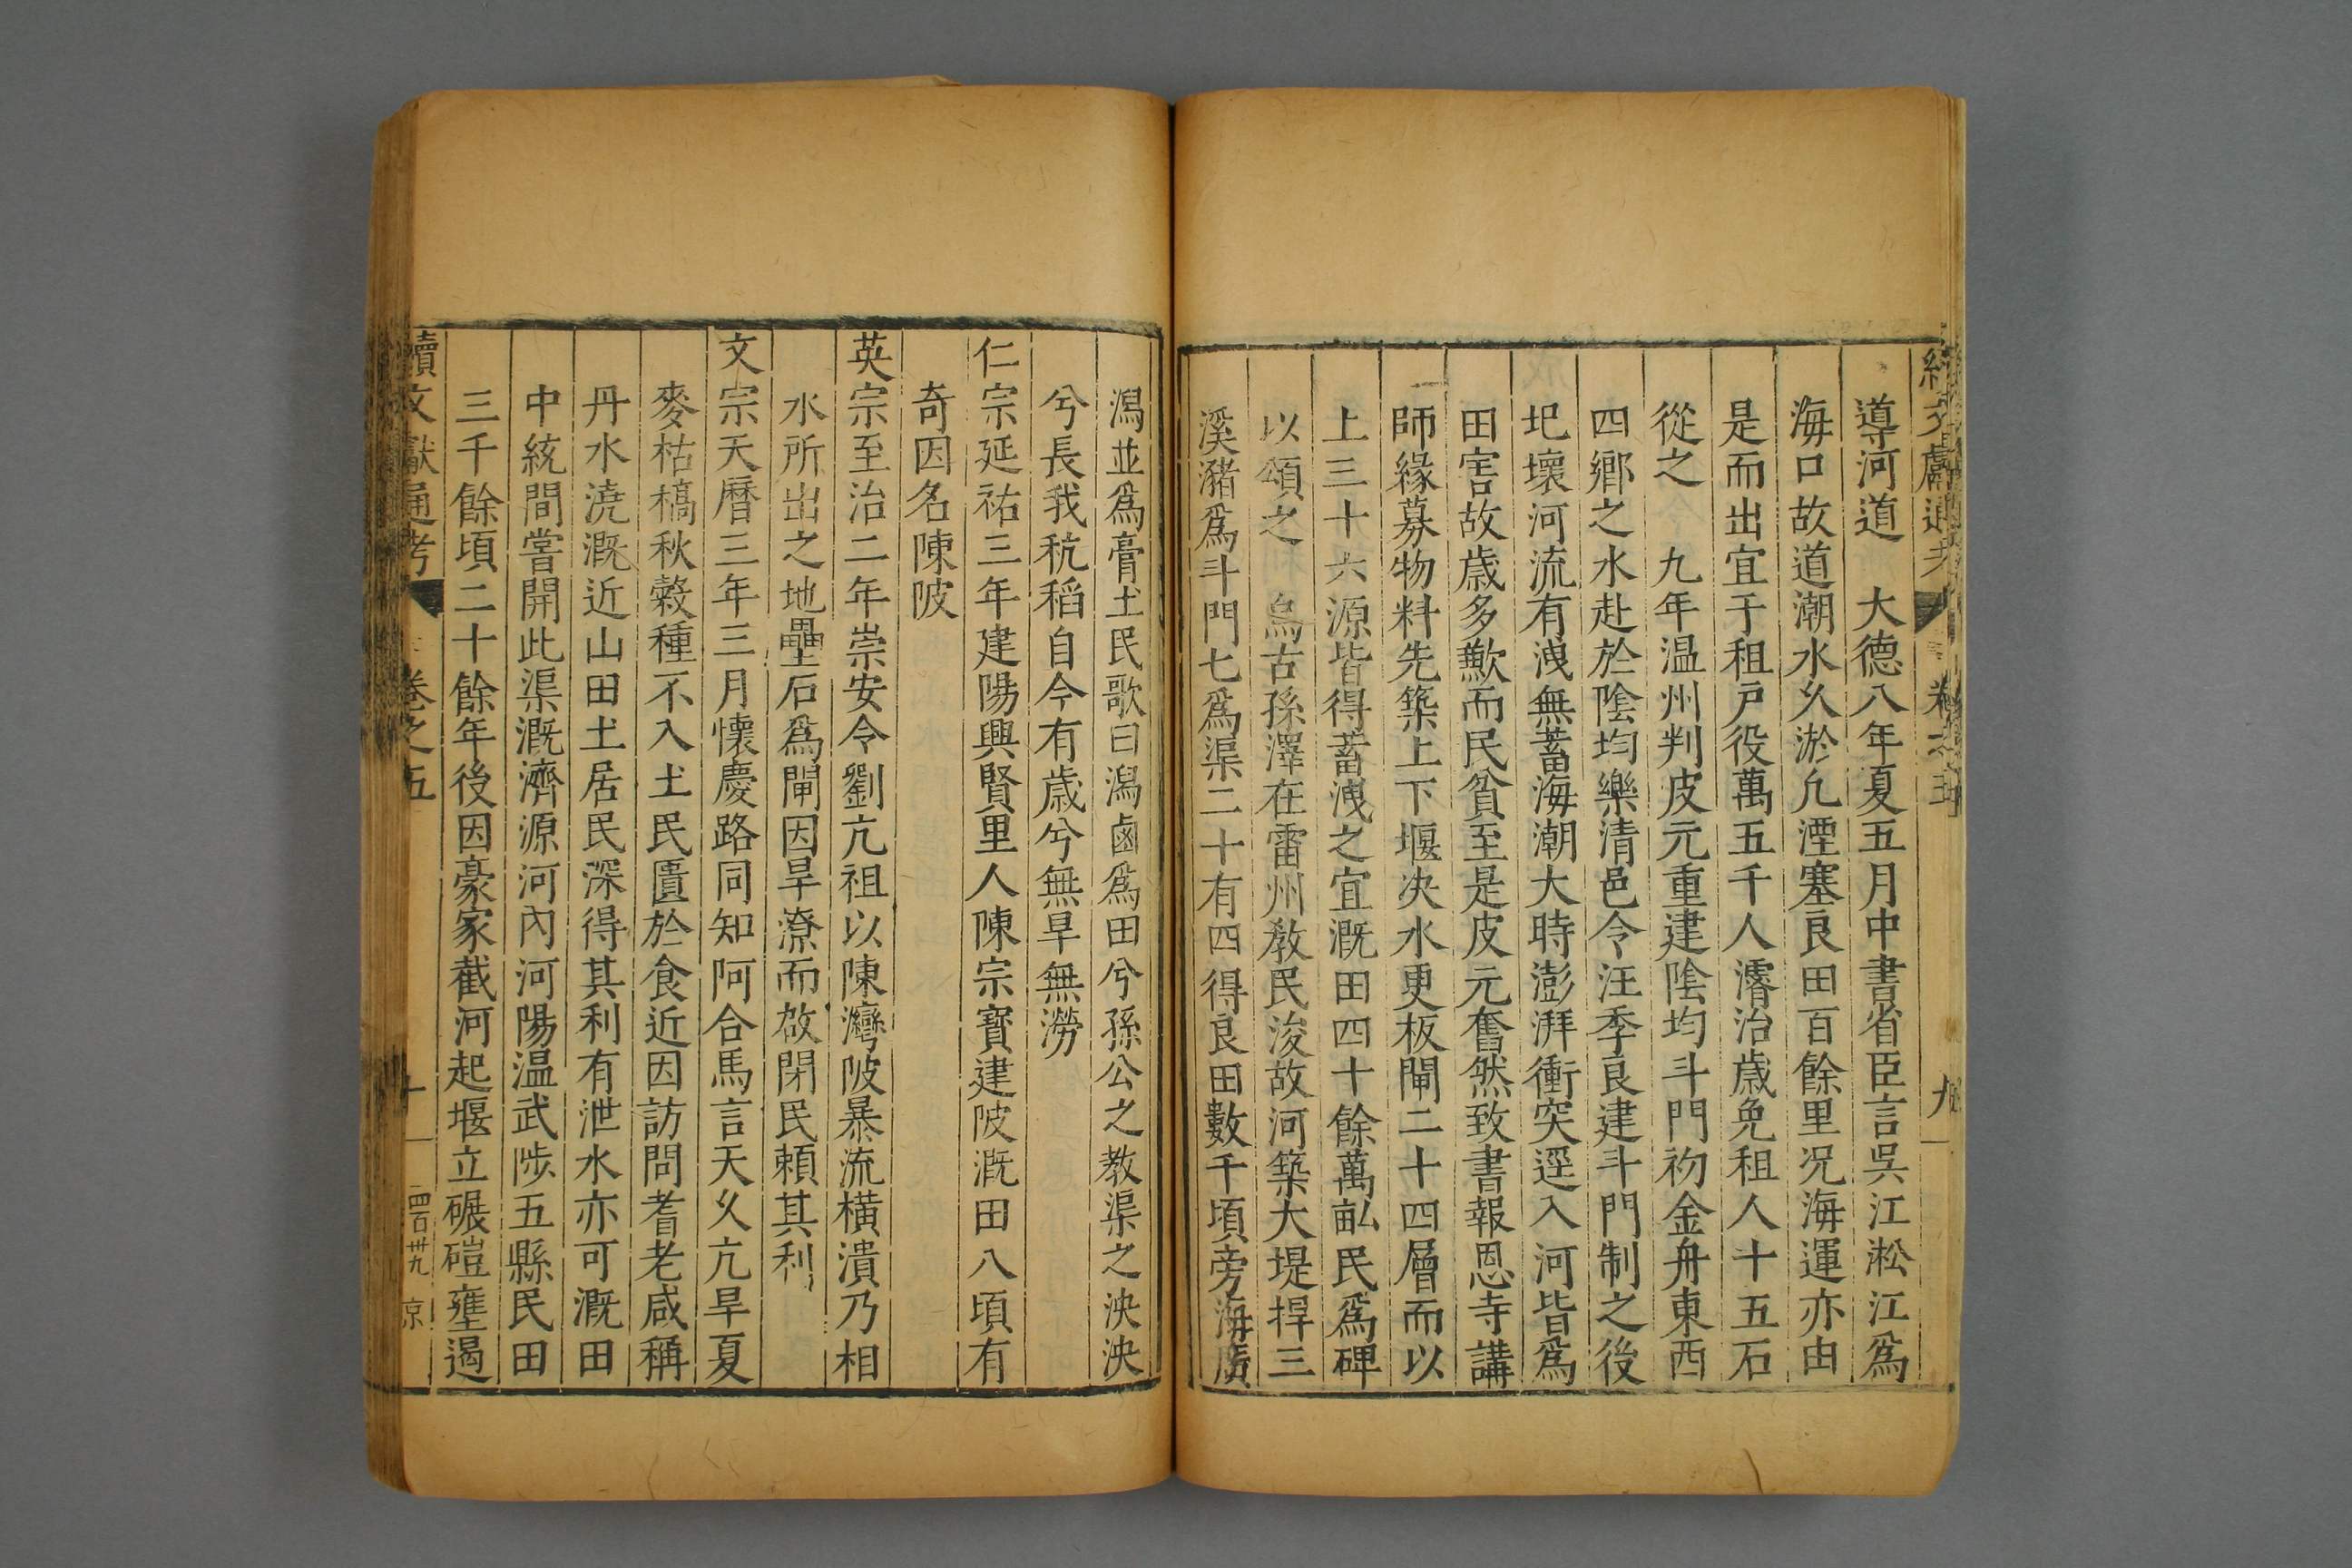 續文獻通考 卷之五 九
導河道 大德八年夏五月中書省臣言吳江淞江爲
海口故道潮水乆淤凢湮塞良田百餘里况海運亦由
是而出宜于租戶役萬五千人濬治歲免租人十五石
從之 九年温州判皮元重建陰均斗門初金舟東西
四鄉之水赴於陰均樂清邑令汪季良建斗門制之後
圯壞河流有洩無蓄海潮大時澎湃衝突逕入河皆爲
田害故歲多歉而民貧至是皮元奮然致書報恩寺講
師緣募物料先築上下堰决水更板閘二十四層而以
上三十六源皆得蓄洩之宜溉田四十餘萬畆民爲碑
以頌之 烏古孫澤在雷州敎民浚故河築大堤捍三
溪瀦爲斗門七爲渠二十有四得良田數千頃旁海廣
潟並爲膏土民歌曰潟鹵爲田兮孫公之教渠之泱泱
兮長我秔稻自今有歲兮無旱無澇
仁宗延祐三年建陽興賢里人陳宗寳建陂溉田八頃有
奇因名陳陂
英宗至治二年崇安令劉亢祖以陳灣陂暴流橫潰乃相
水所出之地壘石爲閘因旱潦而啟閉民賴其利
文宗天曆三年三月懷慶路同知阿合馬言天乆亢旱夏
麥枯槁秋穀種不入土民匱於食近因訪問耆老咸稱
丹水澆溉近山田土居民深得其利有泄水亦可溉田
中統間嘗開此渠溉濟源河內河陽温武陟五縣民田
三千餘頃二十餘年後因豪家截河起堰立碾磑壅遏
續文獻通考 卷之五 十 四百卅九 京